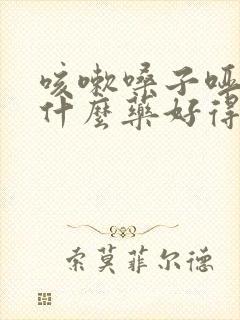 咳嗽嗓子哑
什麽藥好得
索莫菲尔德